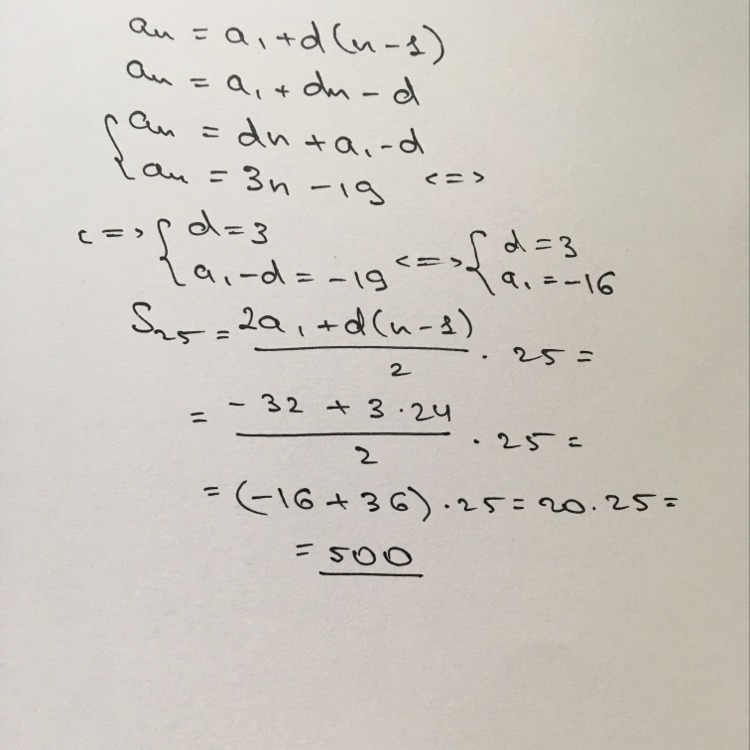 aₙ = a₁ + d(n-1)
aₙ = a₁ + dn - d
{ aₙ = dn + a₁ - d
{ aₙ = 3n - 19 <=>
<=> { d = 3
{ a₁ - d = -19 <=> { d = 3
{ a₁ = -16
S₂₅ = (2a₁ + d(n-1))/2 · 25 =
= (-32 + 3·24)/2 · 25 =
= (-16 + 36)·25 = 20·25 =
= 500